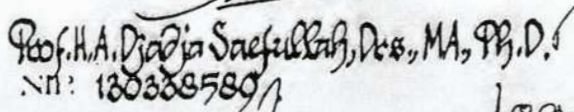 Prof. H.A. Djadja Saefullah, Drs., MA., Ph.D.
NIP: 130338589